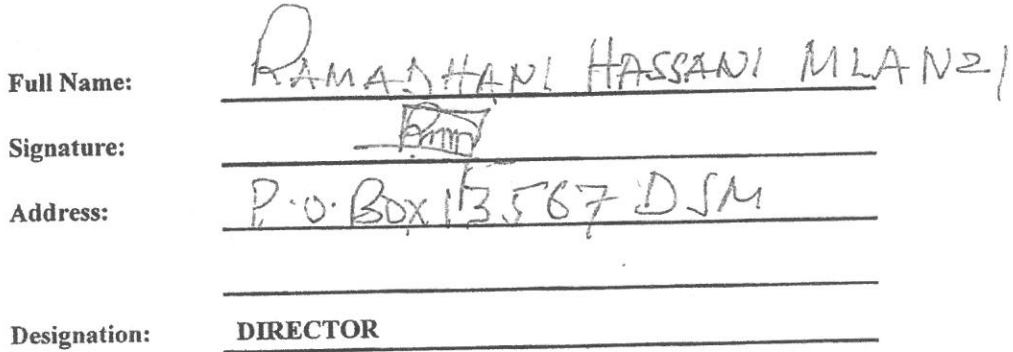 Full Name: RAMADHANI HASSANI MLANZI
Signature:
Address: P.O. BOX 13567 DSM
Designation: DIRECTOR